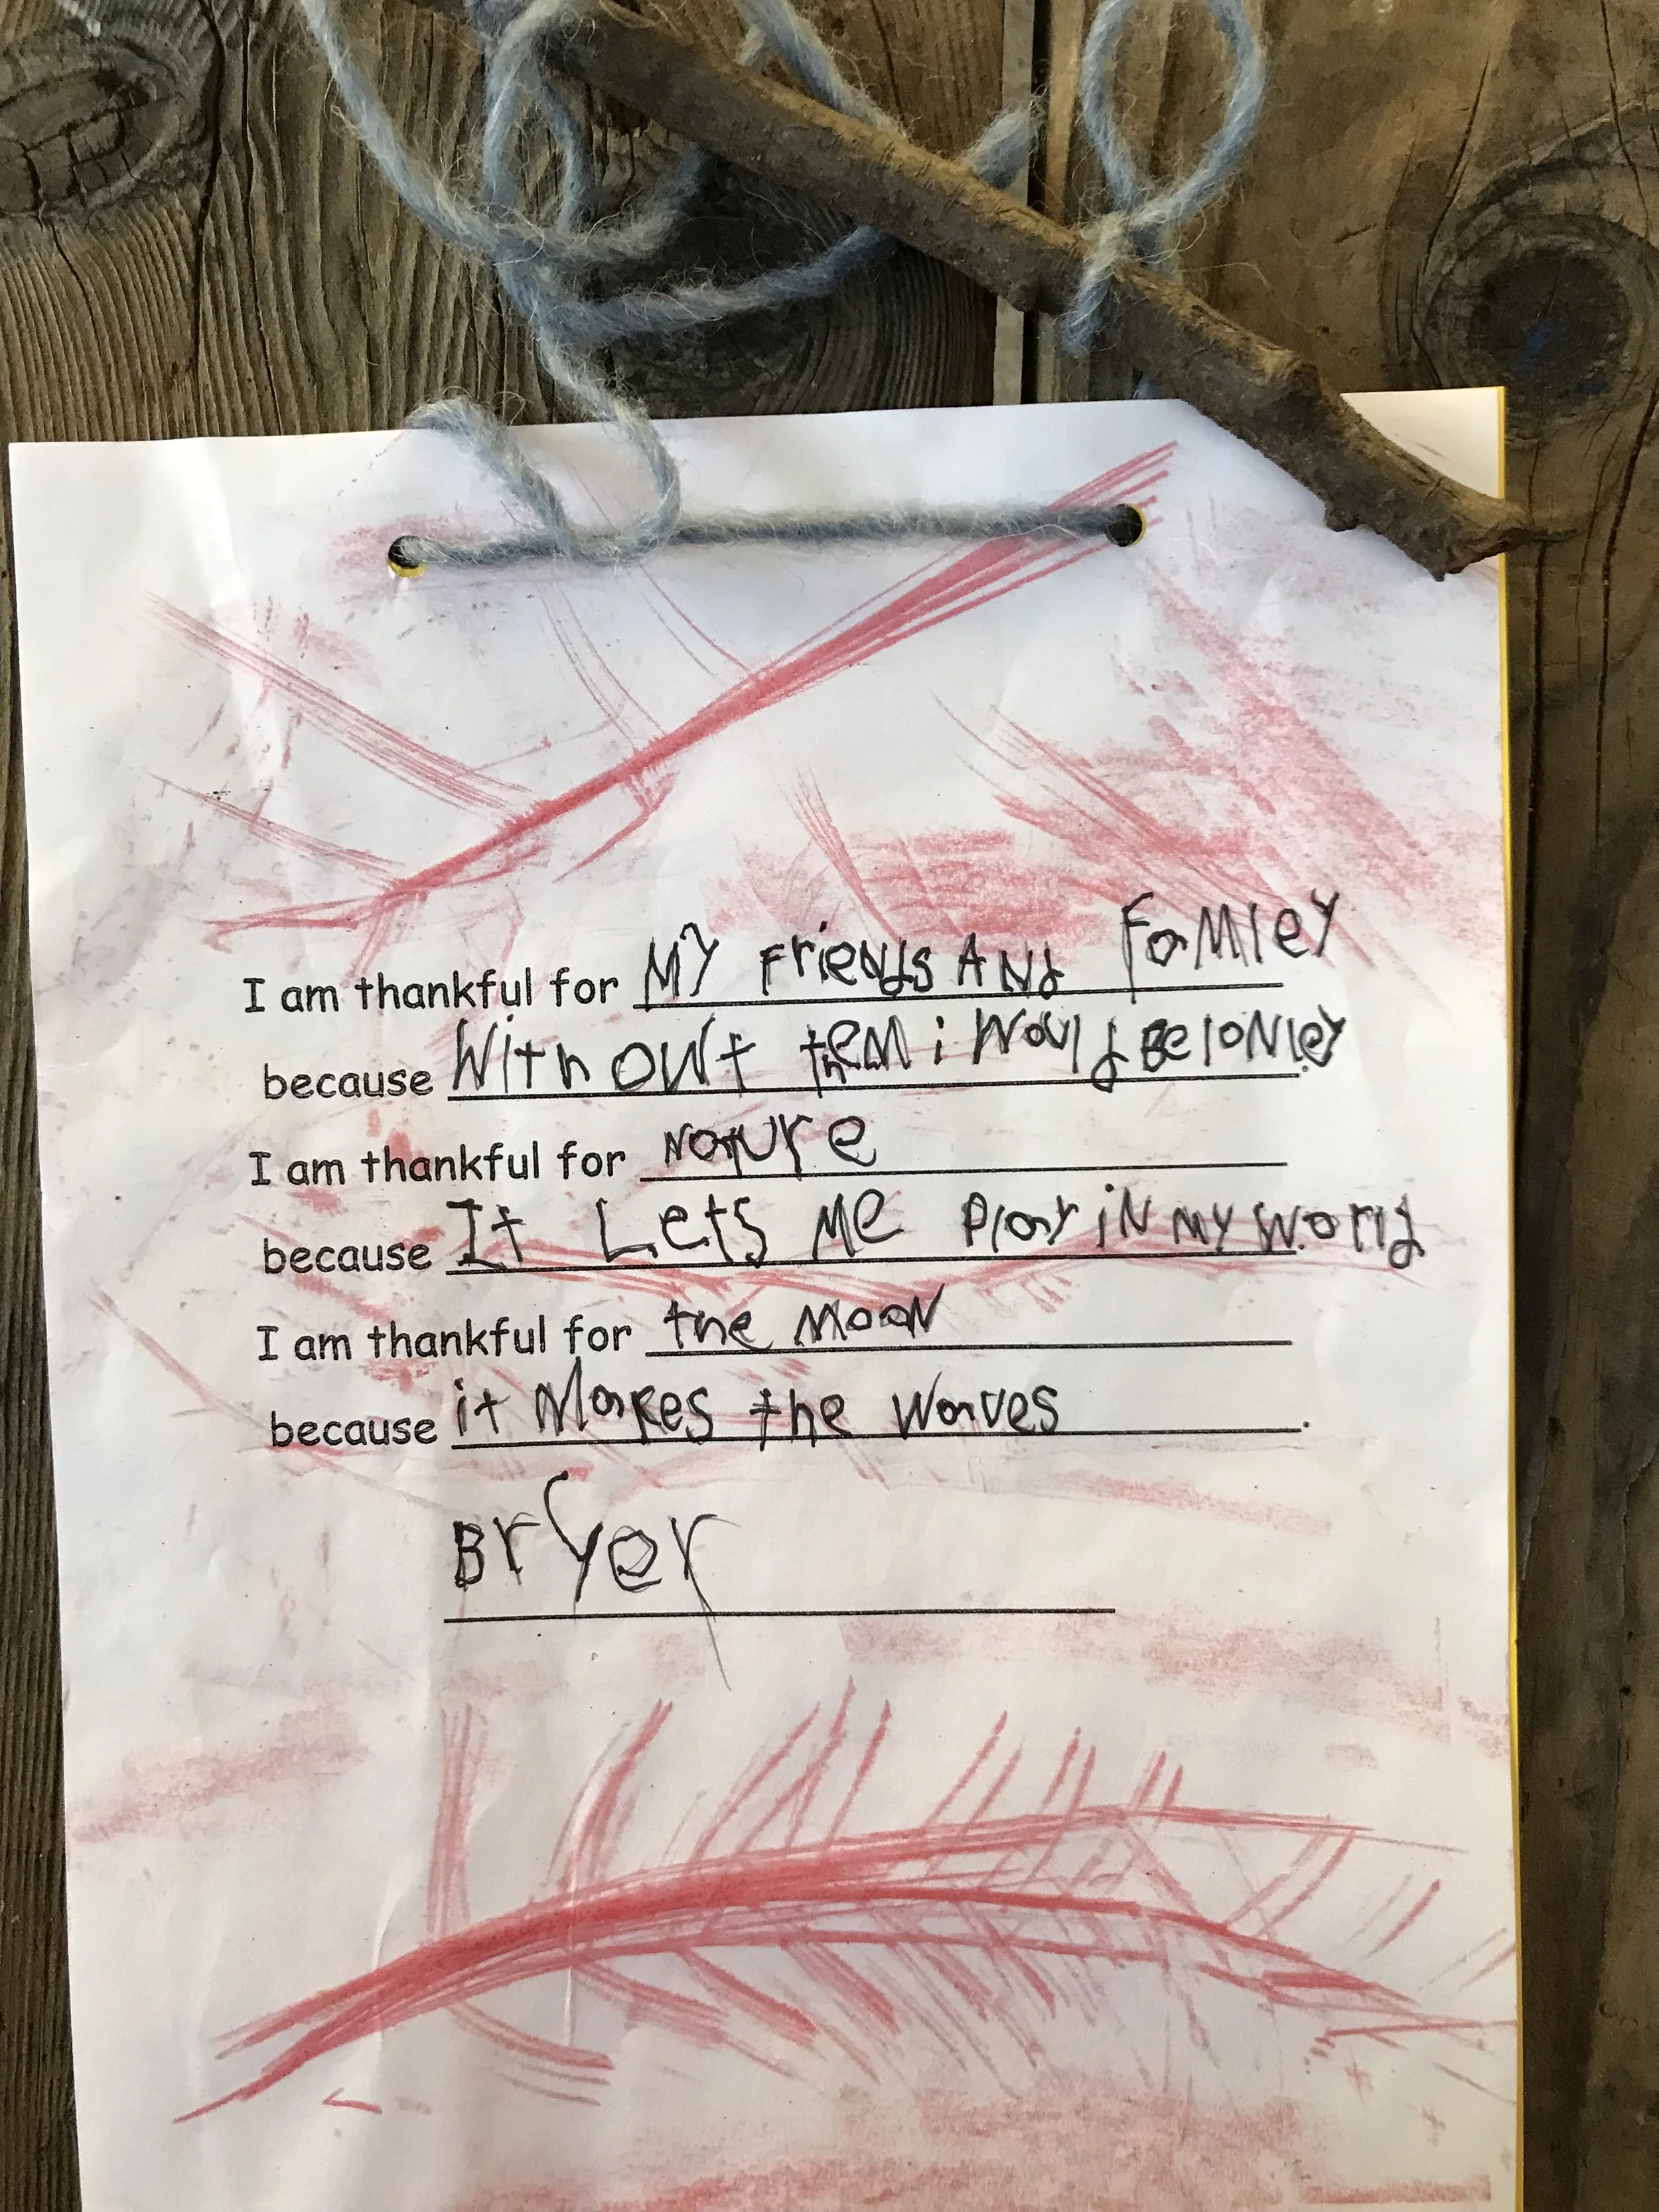 I am thankful for My Friends And Famley
because Without them i would Be lonley.
I am thankful for Nature
because It Lets Me Play iN My World
I am thankful for the MooN
because it Makes the Waves.
Bryer